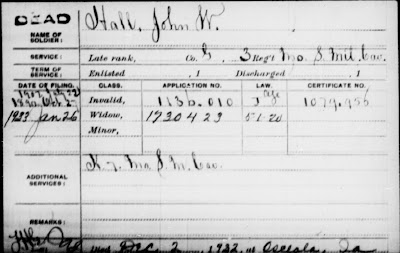 DEAD
NAME OF SOLDIER: Hall, John W.
SERVICE: Late rank, Co. G, 3 Reg't Mo. S. Mil. Cav.
TERM OF SERVICE: Enlisted , 1 Discharged , 1
DATE OF FILING. CLASS. APPLICATION NO. LAW. CERTIFICATE NO.
Invalid, 1136.010
1923 Jan 26 Widow, 1730423
Minor,
ADDITIONAL SERVICES: Mo S. M. Cav.
REMARKS:
Died Dec. 2, 1922, at Osceola, Ia